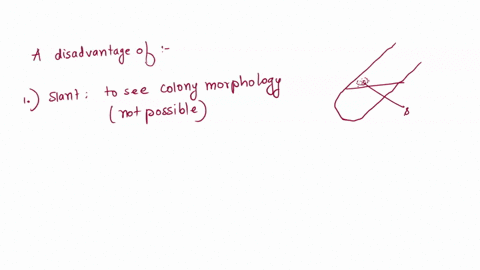 A disadvantage of :-
1.) Slant : to see colony morphology
(not possible)